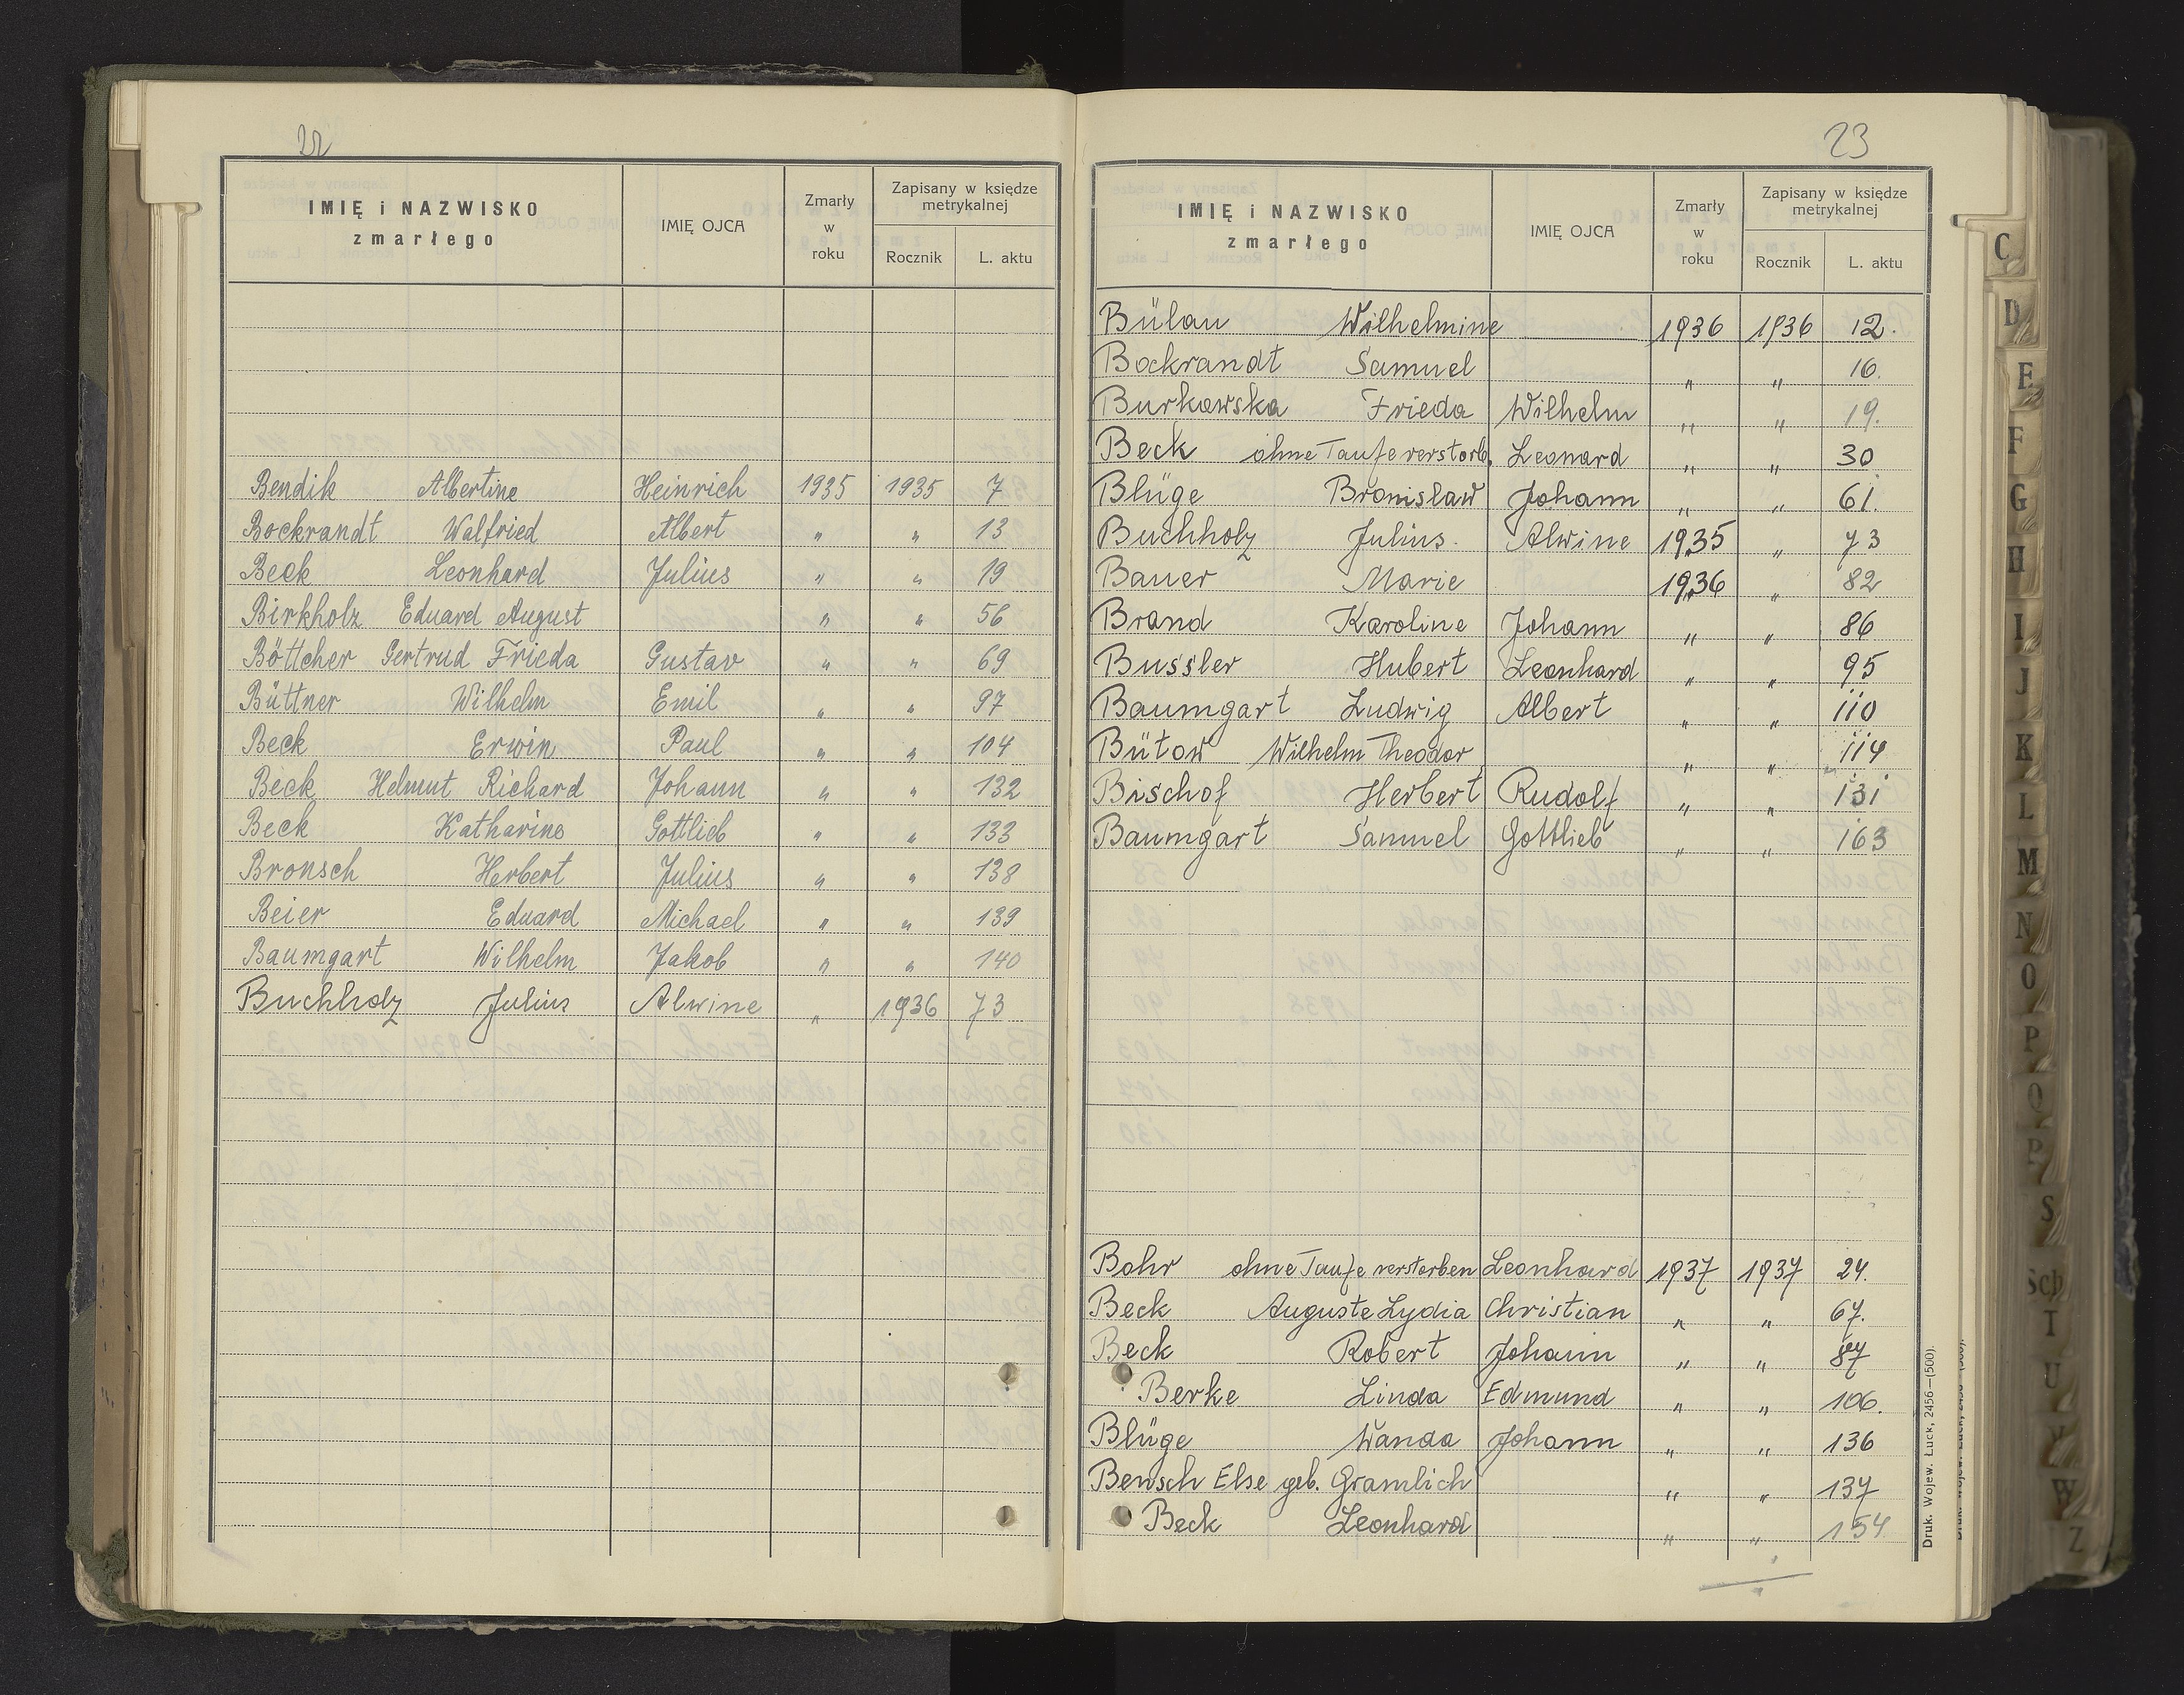 22
IMIĘ i NAZWISKO zmarłego IMIĘ OJCA Zmarły w roku Zapisany w księdze metrykalnej Rocznik L. aktu
Bendik Albertine Heinrich 1935 1935 7
Bockrandt Walfried Albert " " 13
Beck Leonhard Julius " " 19
Birkholz Eduard August " " 56
Böttcher Gertrud Frieda Gustav " " 69
Büttner Wilhelm Emil " " 97
Beck Erwin Paul " " 104
Beck Helmut Richard Johann " " 132
Beck Katharine Gottlieb " " 133
Bronsch Herbert Julius " " 138
Beier Eduard Michael " " 139
Baumgart Wilhelm Jakob " " 140
Buchholz Julius Alwine " 1936 73
23
IMIĘ i NAZWISKO zmarłego IMIĘ OJCA Zmarły w roku Zapisany w księdze metrykalnej Rocznik L. aktu
Bülau Wilhelmine 1936 1936 12.
Bockrandt Samuel " " 16.
Burkowska Frieda Wilhelm " " 19.
Beck ohne Taufe verstorb. Leonard " " 30
Blüge Bronislaw Johann " " 61.
Buchholz Julius. Alwine 1935 " 73
Bauer Marie 1936 " 82
Brand Karoline Johann " " 86
Bussler Hubert Leonhard " " 95
Baumgart Ludwig Albert " " 110
Bütow Wilhelm Theodor " " 114
Bischof Herbert Rudolf " " 131
Baumgart Samuel Gottlieb " " 163
Bohr ohne Taufe verstorben Leonhard 1937 1937 24.
Beck Auguste Lydia Christian " " 67.
Beck Robert Johann " " 87
Berke Linda Edmund " " 106.
Blüge Wanda Johann " " 136
Bensch Else geb. Gramlich " " 137
Beck Leonhard " " 154
Druk. Wojew. Łuck, 2456—(500).
C
D
E
F
G
H
I
J
K
L
M
N
O
P
Q
S
Sch
T
U
W
Z